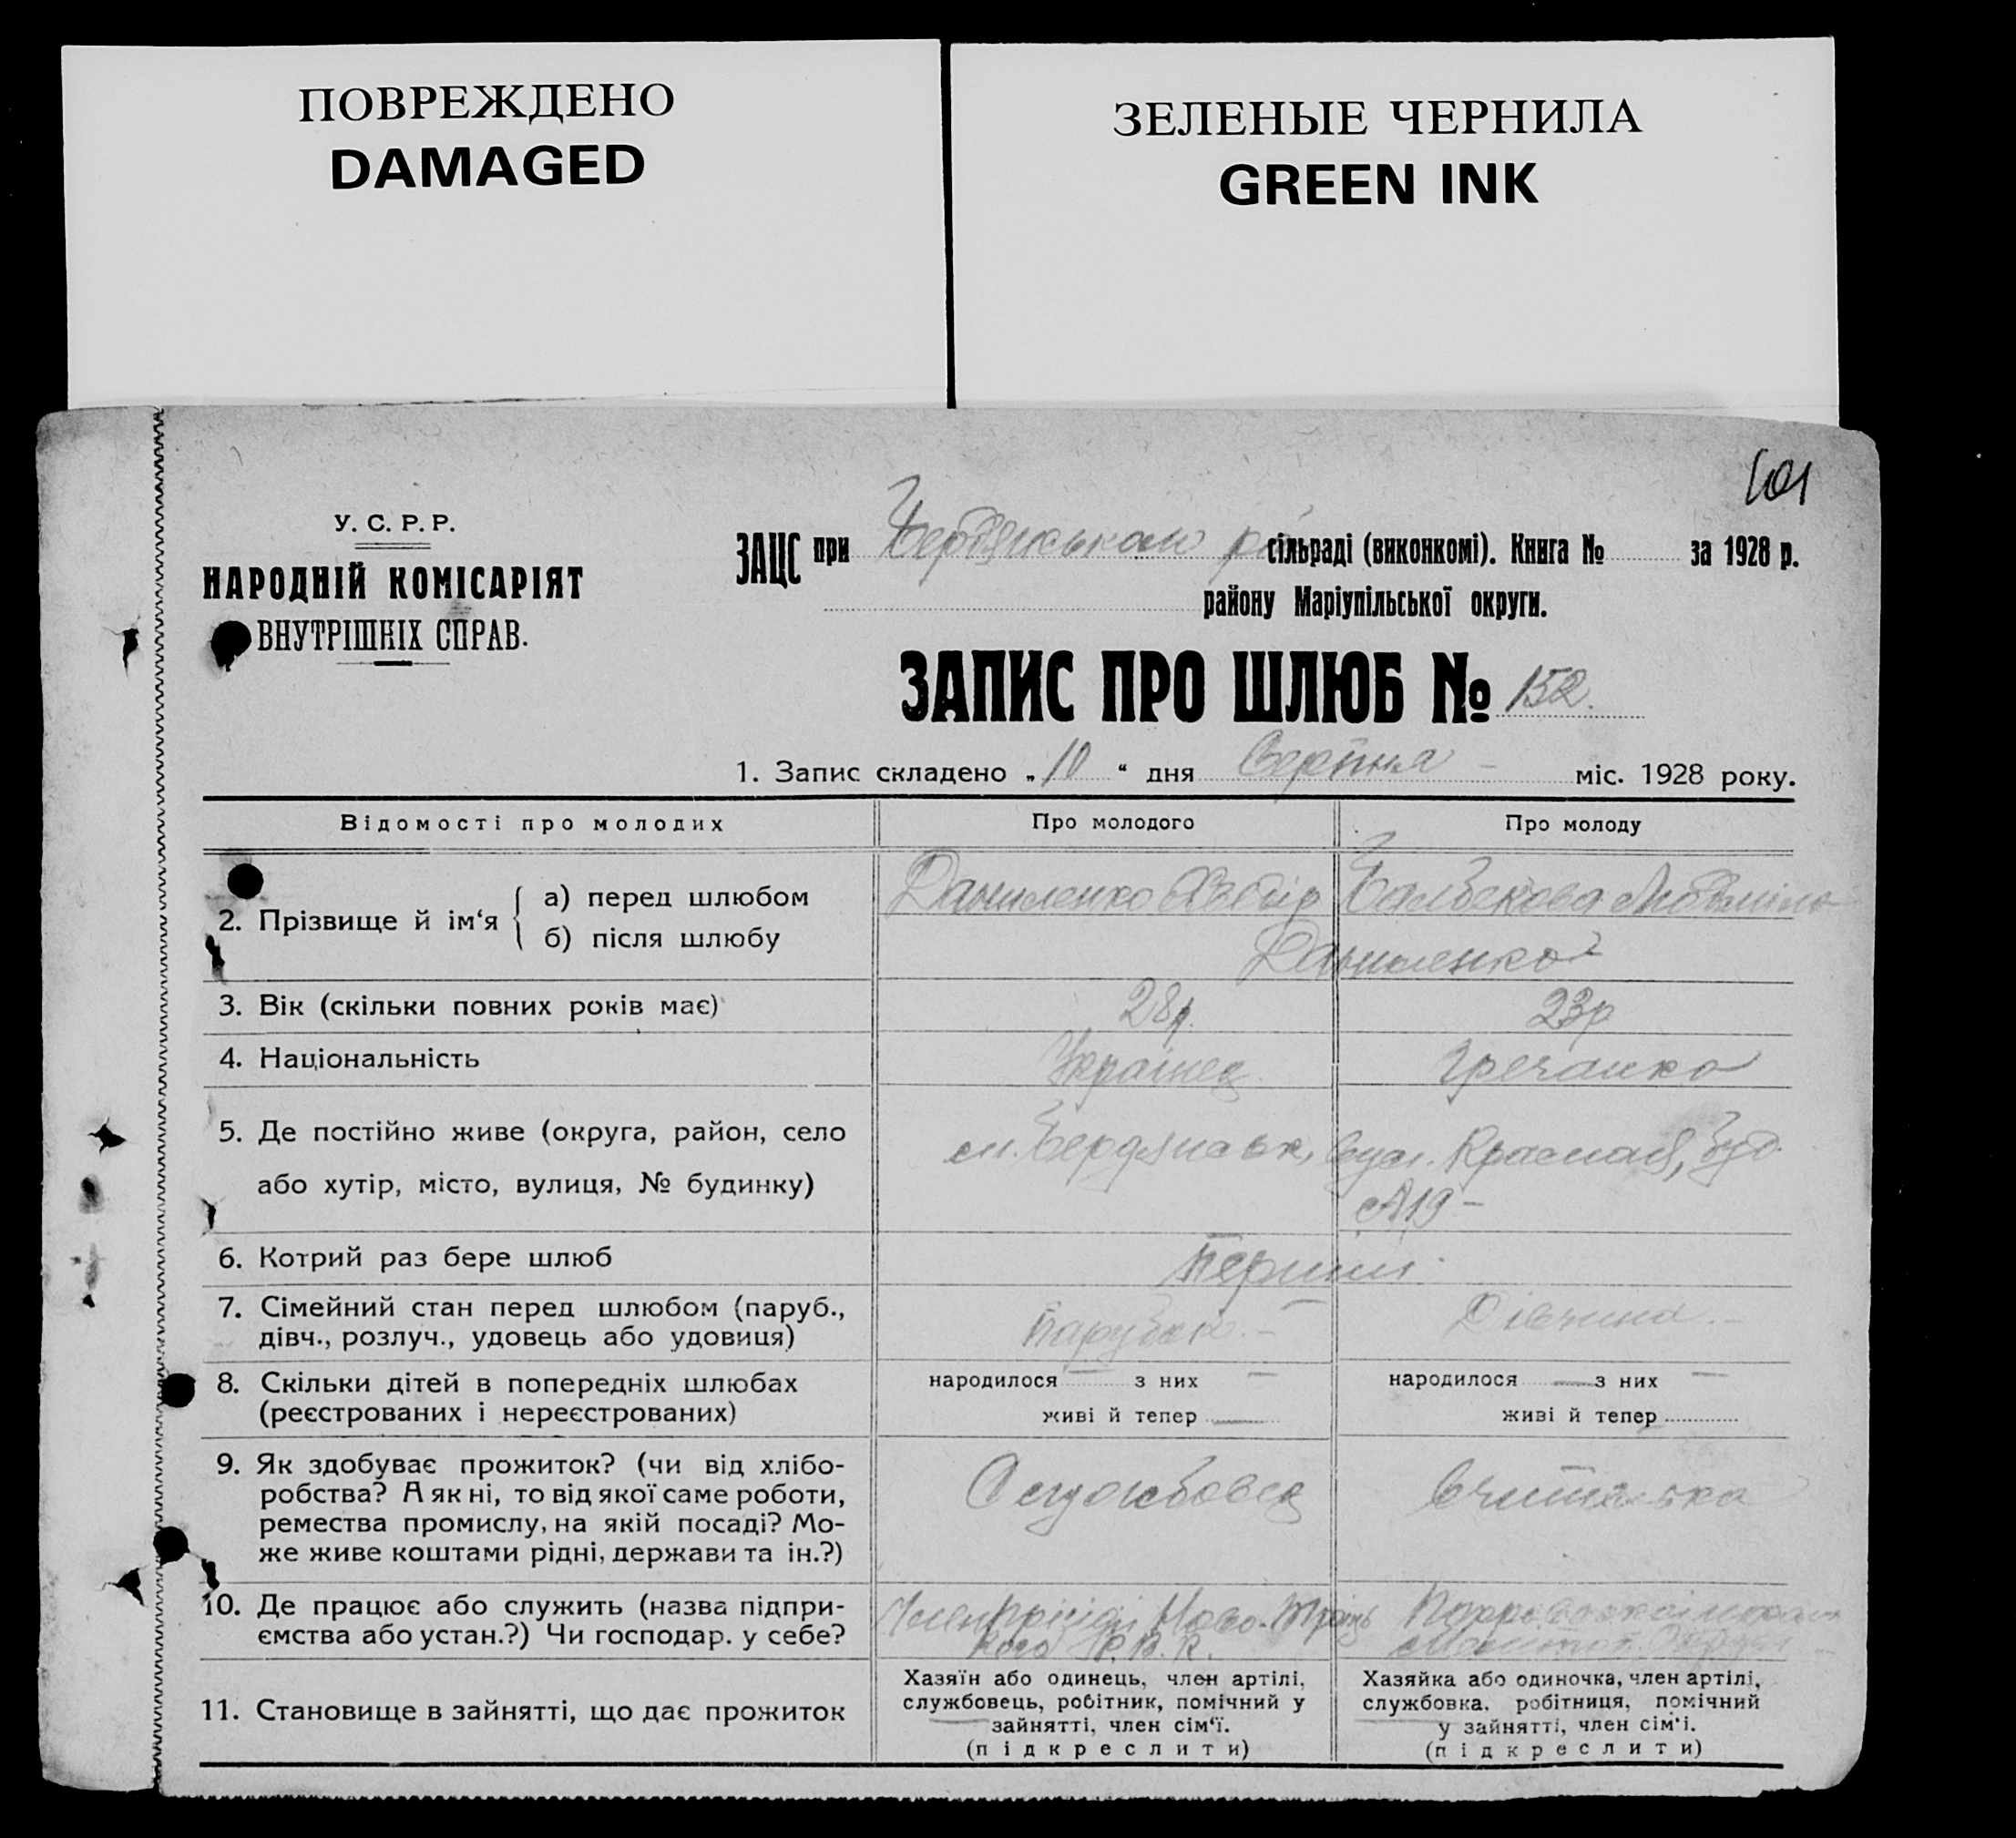 ПОВРЕЖДЕНО
DAMAGED
ЗЕЛЕНЫЕ ЧЕРНИЛА
GREEN INK
У. С. Р. Р.
НАРОДНІЙ КОМІСАРІЯТ
ВНУТРІШНІХ СПРАВ.
ЗАЦС при сільраді (виконкомі). Книга № за 1928 р.
району Маріупільської округи.
ЗАПИС ПРО ШЛЮБ № 152.
1. Запис складено „10“ дня Серпня – міс. 1928 року.
Відомості про молодих
Про молодого
Про молоду
2. Прізвище й ім‘я
а) перед шлюбом
б) після шлюбу
Даниленко
Даниленко
3. Вік (скільки повних років має)
28р.
23р
4. Національність
Українец
Гречанка
5. Де постійно живе (округа, район, село
або хутір, місто, вулиця, № будинку)
м. Бердянськ, вул. Красная, буд.
№19 –
6. Котрий раз бере шлюб
7. Сімейний стан перед шлюбом (паруб.,
дівч., розлуч., удовець або удовиця)
Парубок. –
Дівчина. –
8. Скільки дітей в попередніх шлюбах
(реєстрованих і нереєстрованих)
народилося — з них —
живі й тепер
народилося — з них —
живі й тепер
9. Як здобуває прожиток? (чи від хлібо-
робства? А як ні, то від якої саме роботи,
ремества промислу, на якій посаді? Мо-
же живе коштами рідні, держави та ін.?)
Службовец
Вчителька
10. Де працює або служить (назва підпри-
ємства або устан.?) Чи господар. у себе?
Р.В.К.
11. Становище в зайнятті, що дає прожиток
Хазяїн або одинець, член артілі,
службовець, робітник, помічний у
зайнятті, член сім‘ї.
(підкреслити)
Хазяйка або одиночка, член артілі,
службовка, робітниця, помічний
у зайнятті, член сім‘і.
(підкреслити)